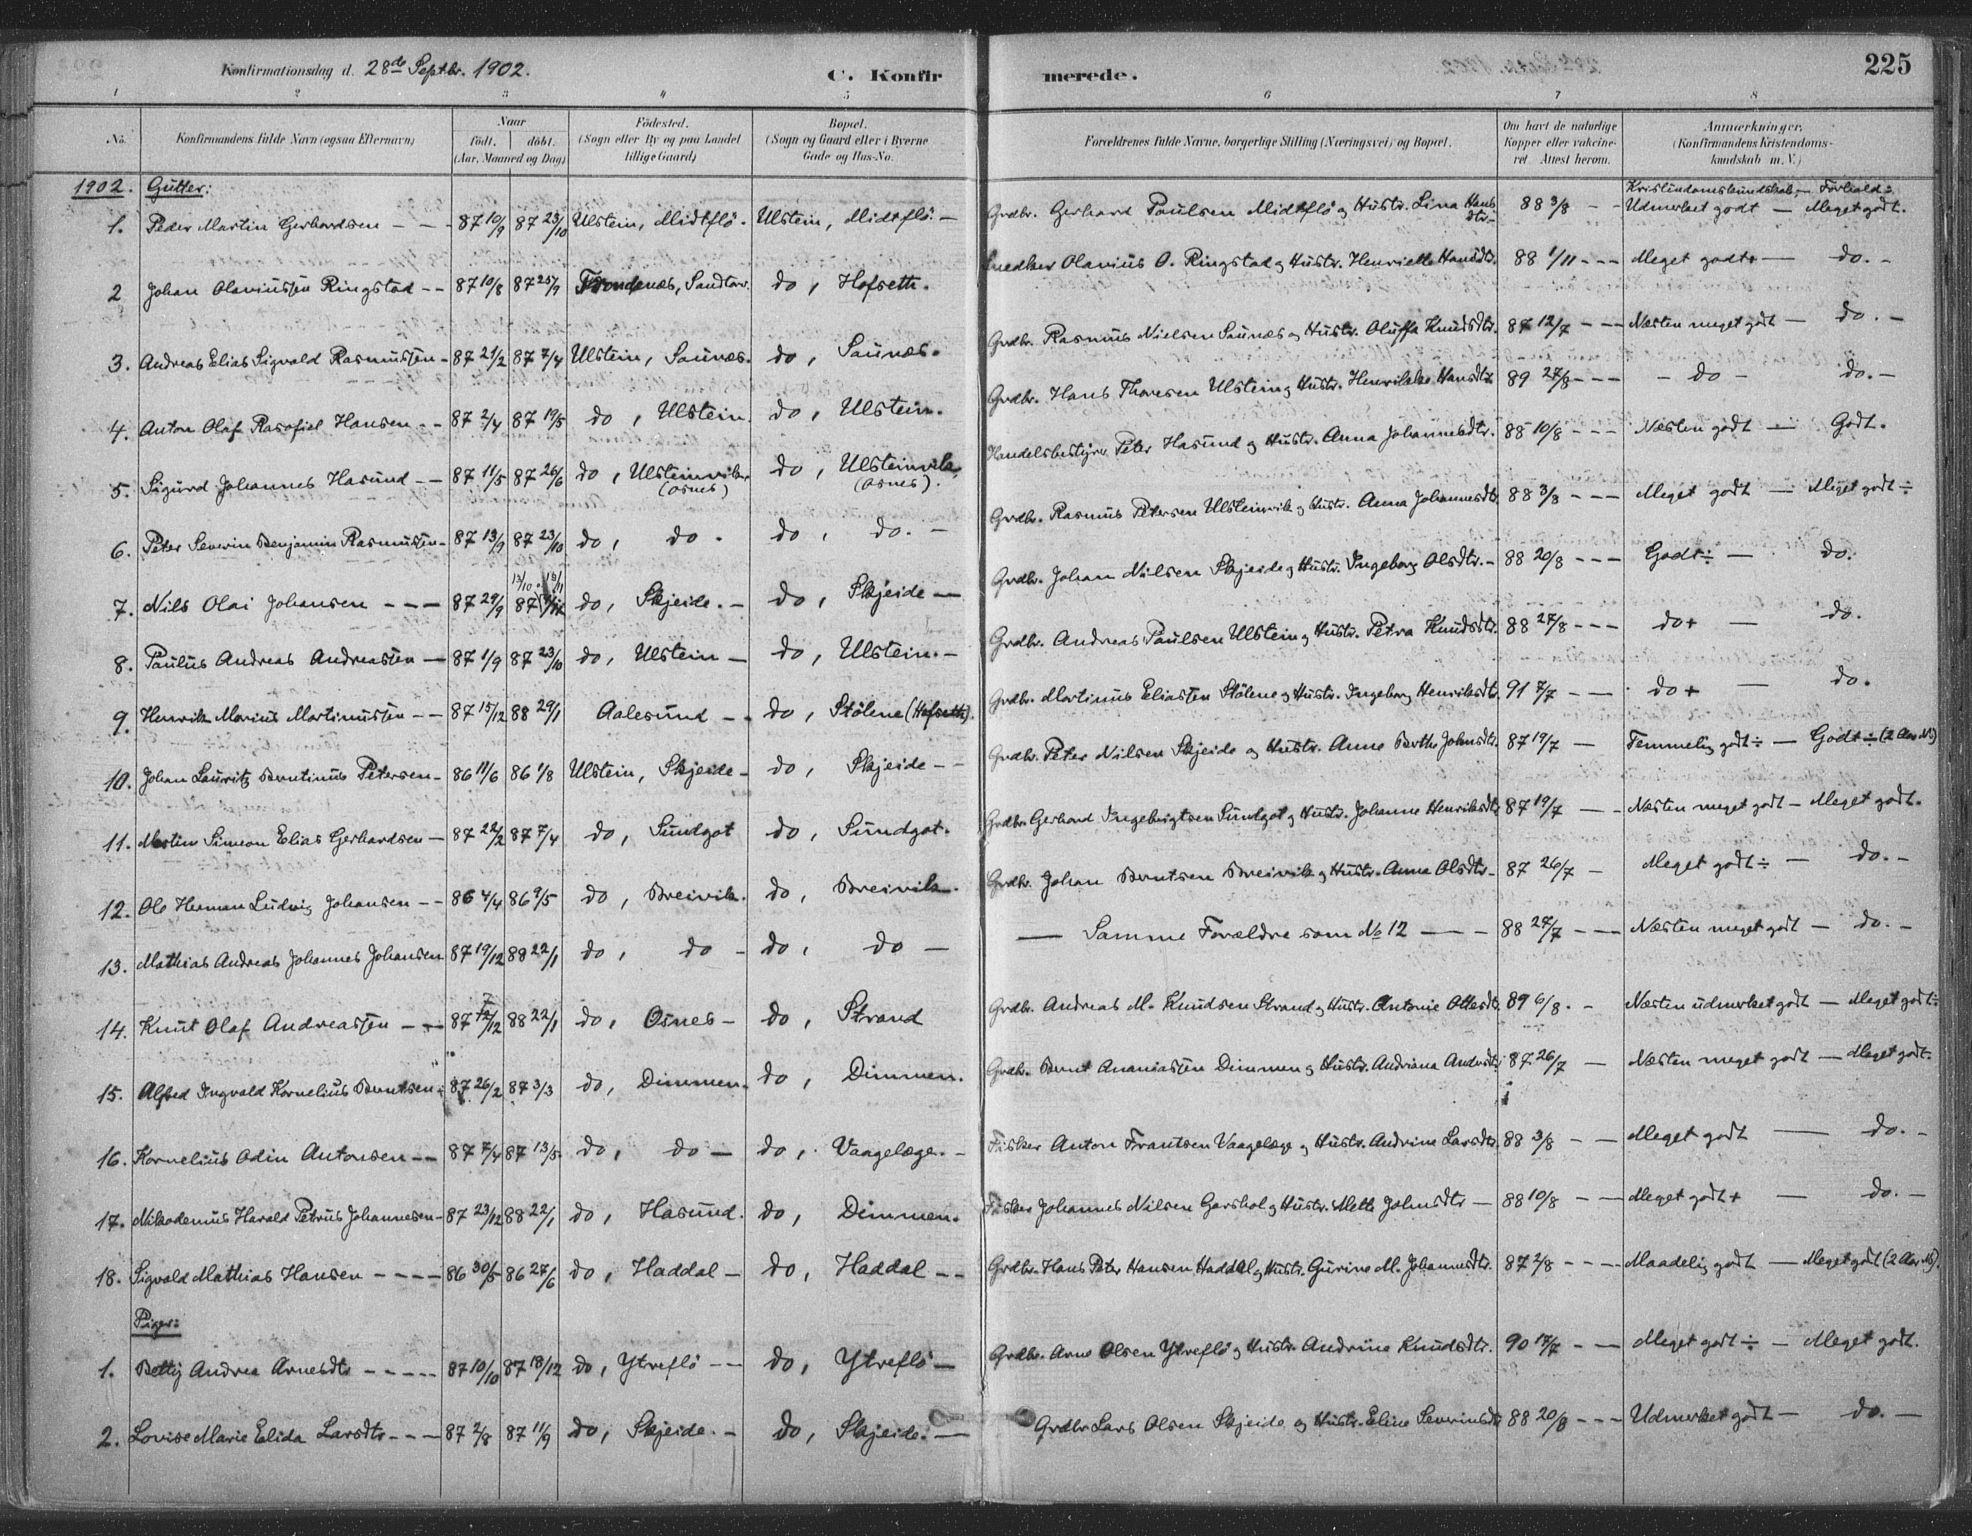 Konfirmationsdag d. 28de Septbr. 1902. C. Konfirmerede. 225
1 2 3 4 5 6 7 8
No. Konfirmandens fulde Navn (ogsaa Efternavn) Naar født. døbt. (Aar, Maaned og Dag) Fødested. (Sogn eller By og paa Landet tillige Gaard) Bopæl. (Sogn og Gaard eller i Byerne Gade og Hus-No. Forældrenes fulde Navne, borgerlige Stilling (Næringsvei) og Bopæl. Om havt de naturlige Kopper eller vakcineret Attest herom. Anmærkninger. (Konfirmandens Kristendomskundskab m. V.)
1902. Gutter: Kristendomskundskab, — Forhold:
1. Peder Martin Gerhardsen - - - 87 10/9 87 23/10 Ulstein, Midtflö. Ulstein, Midtflö. — Grdbr. Gerhard Paulsen Midtflö og Hustr. Lina Hansdtr. 88 3/8 - - Udmerket godt — Meget godt.
2 Johan Olaviussen Ringstad - - 87 10/8 87 25/9 Trondenæs, Sandtorv. do, Hofseth. Snedker Olavius O. Ringstad og Hustr. Henriette Hansdtr. 88 1/11 - - - Meget godt+ — do. -
3. Andreas Elias Sigvald Rasmussen - 87 21/2 87 7/4 Ulstein, Saunæs. do, Saunæs. Grdbr. Rasmus Nielsen Saunæs og Hustr. Oluffa Knudsdtr. 87 12/7 - - - Næsten meget godt — do. -
4. Anton Olaf Rasofiel Hansen - - 87 2/4 87 19/5 do, Ulstein. do, Ulstein. Grdbr. Hans Thoresen Ulstein og Hustr. Henrikke Hansdtr. 89 27/8 - - - - do - do. -
5. Sigurd Johannes Hasund - - 87 11/5 87 26/6 do, Ulsteinvik (Osnes) do, Ulsteinvik (Osnes). Handelsbestyrer Peter Hasund og Hustr. Anna Johannesdtr. 88 10/8 - - - Næsten godt — Godt.
6. Peter Severin Benjamin Rasmussen - 87 13/9 87 23/10 do, do. do, do. - Grdbr. Rasmus Petersen Ulsteinvik og Hustr. Anna Johannesdtr. 88 3/8 - - - Meget godt — Meget godt ÷
7. Nils Olai Johansen - - - 87 29/9 87 13/11 do, Skjeide. - do, Skjeide — Grdbr. Johan Nilsen Skjeide og Hustr. Ingeborg Olsdtr. - 88 20/8 - - - Godt ÷ — do.
8. Paulus Andreas Andreassen — 87 1/9 87 23/10 do, Ulstein — do, Ulstein. - Grdbr. Andreas Paulsen Ulstein og Hustr. Petra Knudsdtr. 88 27/8 - - - do + — do.
9. Henrik Marius Martinussen - - 87 15/12 88 29/1 Aalesund - - do, Stölene (Hofseth). Grdbr. Martinus Eliassen Stölene og Hustr. Ingeborg Henriksdtr. 91 7/7 - — do + — do.
10. Johan Lauritz Berntinus Petersen - 86 11/6 86 1/8 Ulstein, Skjeide - do, Skjeide - - Grdbr. Peter Nilsen Skjeide og Hustr. Anne Berthe Johnsdtr. 87 19/7 — Temmelig godt ÷ — Godt ÷ (2 Aar N)
11. Martin Simeon Elias Gerhardsen - 87 22/2 87 7/4 do, Sundgot do, Sundgot. Grdbr. Gerhard Ingebrigtsen Sundgot og Hustr. Johanne Henriksdtr. 87 19/7 - - Næsten meget godt - Meget godt.
12. Ole Herman Ludvig Johansen - - 86 4/4 86 9/5 do, Breivik. do, Breivik. Grdbr. Johan Berntsen Breivik og Hustr. Anna Olsdtr - 87 26/7 — Meget godt ÷ — do. -
13. Mathias Andreas Johannes Johansen 87 19/12 88 22/1 do, do - do, do - — Samme Forældre som No 12 - - - 88 27/7 - - - Næsten meget godt — do. -
14. Knut Olaf Andreassen - - 87 7/12 88 22/1 do, Osnes - do, Strand Grdbr. Andreas M. Knudsen Strand og Hustr. Antonie Ottesdtr. 89 6/8. - Næsten udmerket godt — Meget godt ÷
15. Alfred Ingvald Kornelius Berntsen 87 26/2 87 3/3 do, Dimmen. do, Dimmen. Grdbr. Bernt Ananiassen Dimmen og Hustr. Andriana Andrsdtr. 87 26/7 — Næsten meget godt — Meget godt.
16. Kornelius Odin Antonsen - - 87 7/4 87 13/5 do, do — do, Vaagelæge. - Fisker Anton Frantsen Vaagelæge og Hustr. Andrine Larsdtr. 88 3/8 - - Meget godt — do. -
17. Nikodemus Harald Petrus Johannesen - 87 23/12 88 22/1 do, Hasund. do, Dimmen. Fisker Johannes Nilsen Garshol og Hustr. Mette Johnsdtr — 88 10/8 - — Meget godt + — do. -
18. Sigvald Mathias Hansen - - - - 86 30/5 86 27/6 do, Haddal - do, Haddal - - Grdbr. Hans Peter Hansen Haddal og Hustr. Gurine M. Johannesdtr. 87 2/8 - - - Maadelig godt — Meget godt (2 Aar N).
Piger:
1. Betty Andrea Arnesdtr - - - - - 87 10/10 87 18/12 do, Ytreflö - - do, Ytreflö — Grdbr. Arne Olsen Ytreflö og Hustr. Andrine Knudsdtr. 90 17/7 - — Meget godt ÷ - Meget godt.
2. Lovise Marie Elida Larsdtr - - - 87 2/8 87 11/9 do, Skjeide. - do, Skjeide. — Grdbr. Lars Olsen Skjeide og Hustr. Eline Severinsdtr 88 20/8 - - - Udmerket godt — do. —